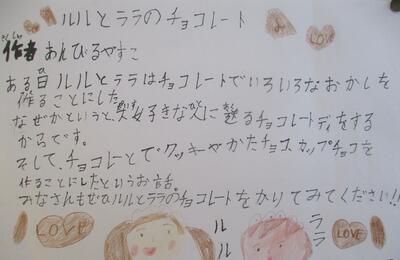 ルルとララのチョコレート
LOVE
さくしゃ
作者 あんびるやすこ
ある日ルルとララはチョコレートでいろいろなおかしを
作ることにした。
なぜかというと、好きな人に
チョコレートディをする
からです。
そして、チョコレートでクッキーやかたチョコ、カップチョコを
作ることにしたというお話。
みなさんもぜひルルとララのチョコレートをかりてみてください!!
LOVE
ルル
ララ
LOVE